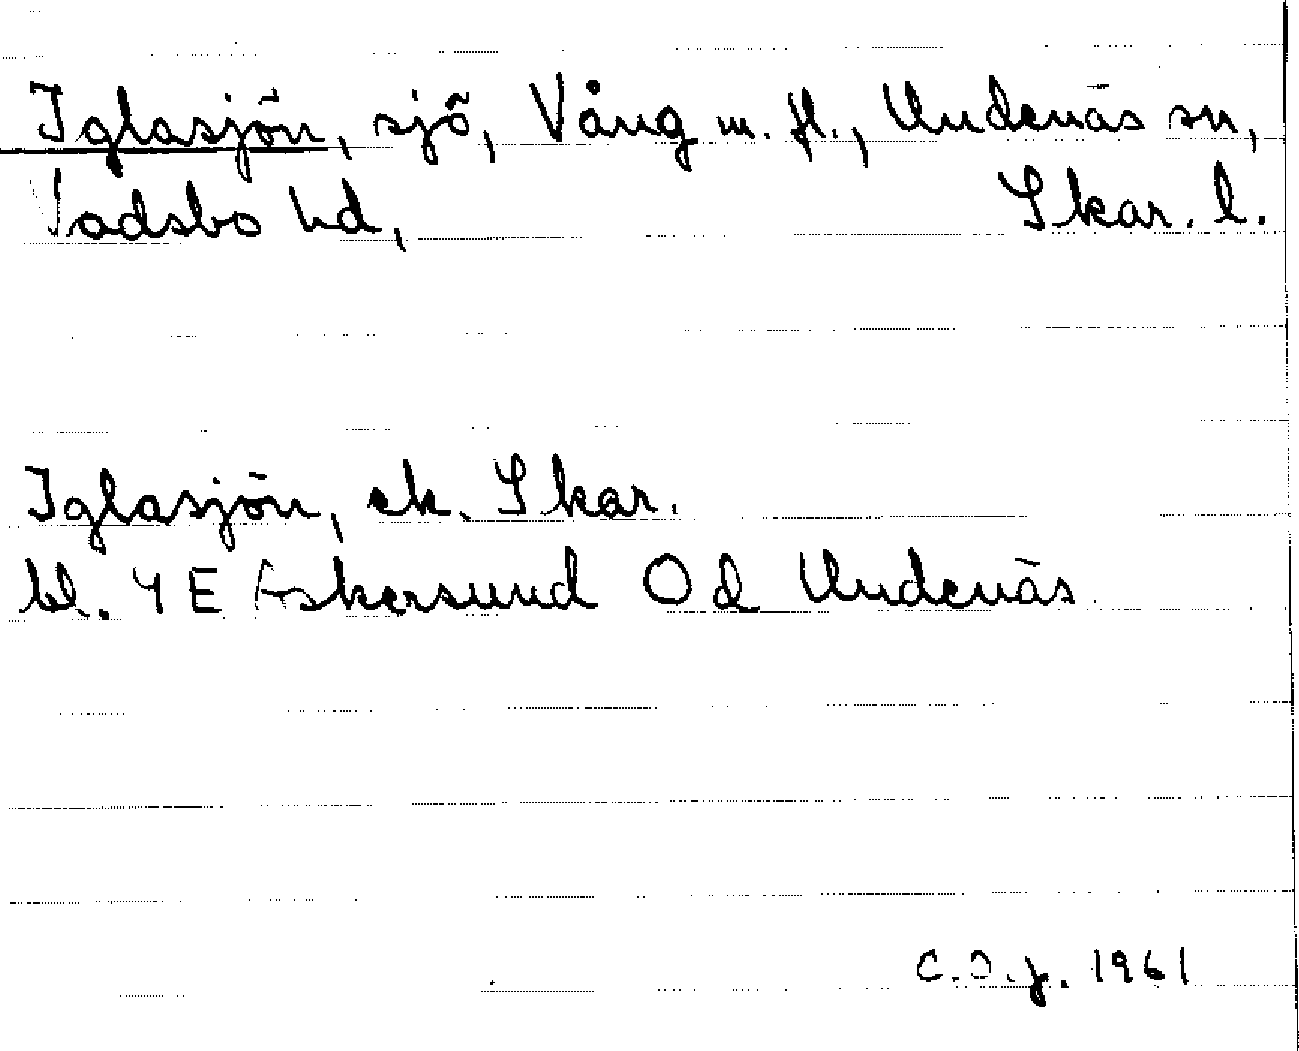 Iglasjön, sjö, Vång m. fl., Undenäs sn,
Vadsbo hd, Skar. l.
Iglasjön, ek. Skar.
bl. 9E Askersund Od Undenäs
C.O.J. 1961